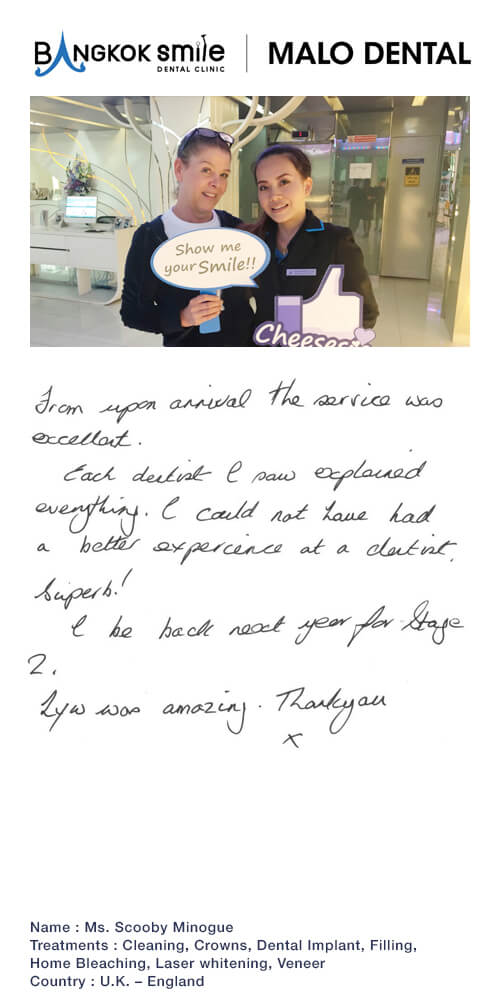 BANGKOK smile
DENTAL CLINIC
MALO DENTAL
Show me
your Smile!!
Cheese
From upon arrival the service was
excellent.
Each dentist I saw explained
everything. I could not have had
a better experience at a dentist.
Superb!
I be back next year for Stage
2.
was amazing. Thankyou
x
Name : Ms. Scooby Minogue
Treatments : Cleaning, Crowns, Dental Implant, Filling,
Home Bleaching, Laser whitening, Veneer
Country : U.K. – England